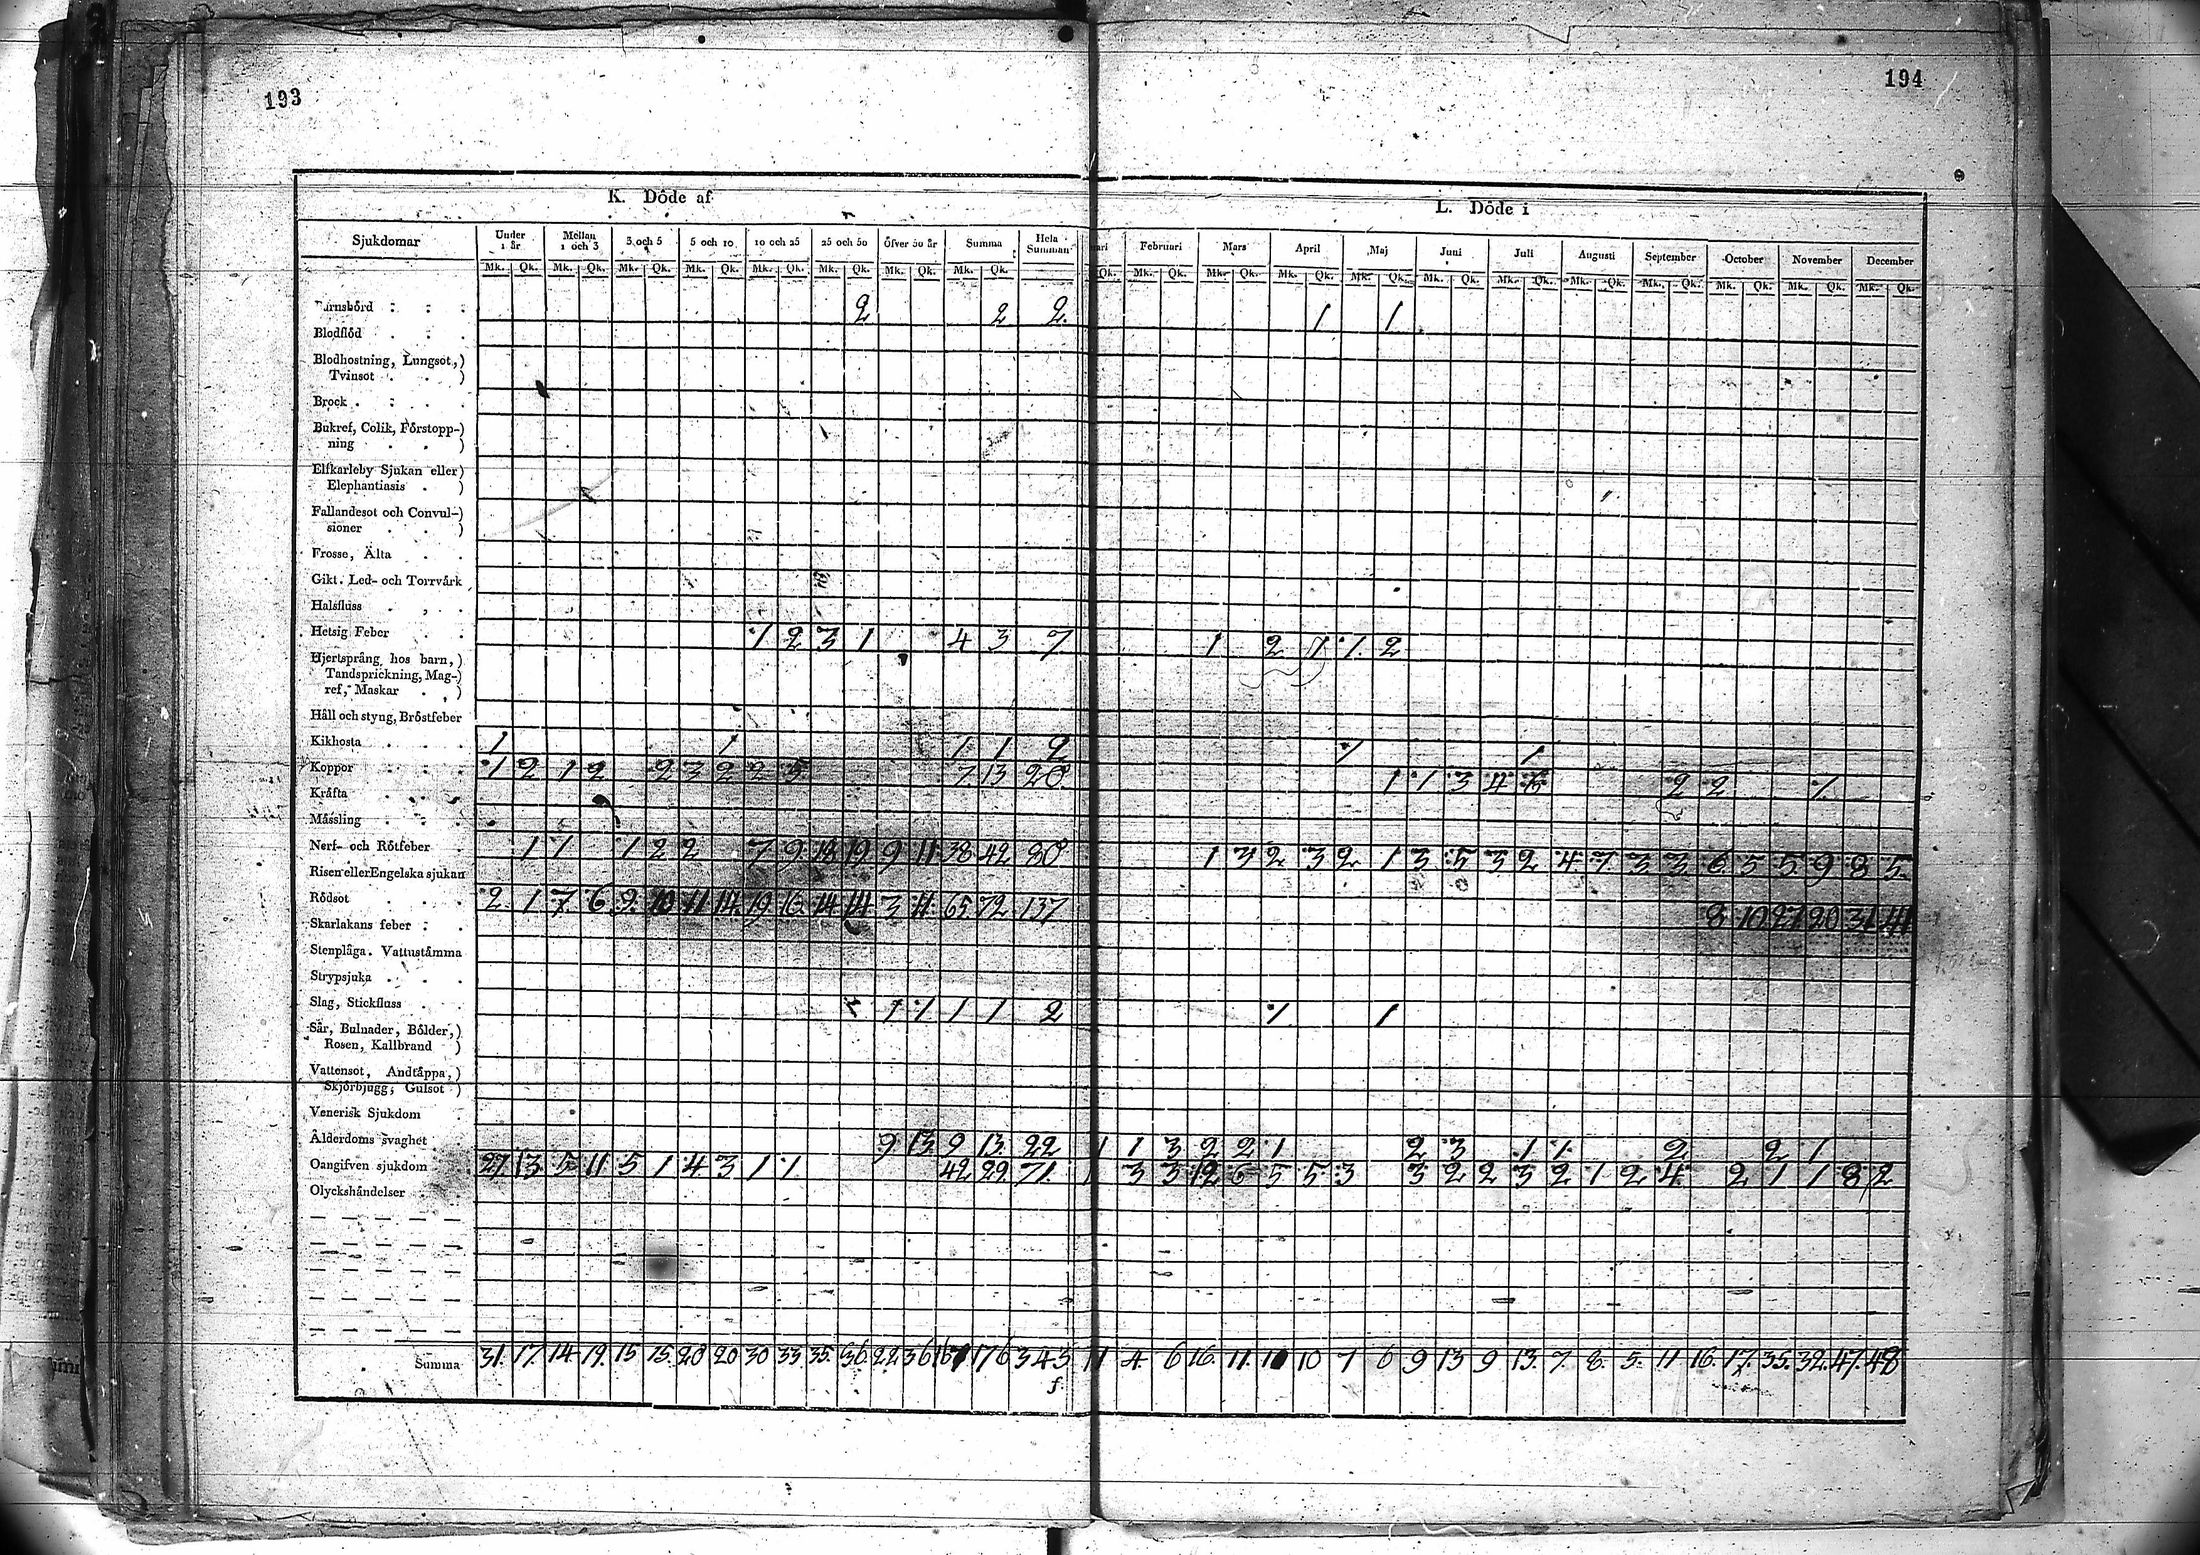 193
194
K. Döde af
L. Döde i
Sjukdomar Under 1 år Mellan 1 och 3 3 och 5 5 och 10 10 och 25 25 och 50 öfver 50 år Summa Hela Summan
Februari Mars April Maj Juni Juli Augusti September October November December
Mk. Qk. Mk. Qk. Mk. Qk. Mk. Qk. Mk. Qk. Mk. Qk. Mk. Qk. Mk. Qk.
Qk. Mk. Qk. Mk. Qk. Mk. Qk. Mk. Qk. Mk. Qk. Mk. Qk. Mk. Qk. Mk. Qk. Mk. Qk. Mk. Qk. Mk. Qk.
2 2 2. 1 1
Blodflöd
Blodhostning, Lungsot,)
Tvinsot )
Brock
Bukref, Colik, Förstopp-)
ning )
Elfkarleby Sjukan eller)
Elephantiasis )
Fallandesot och Convul-)
sioner )
Frosse, Älta
Gikt. Led- och Torrvärk
Halsfluss
Hetsig Feber 1 2 3 1 4 3 7 1 2 1 1. 2
Hjertsprång hos barn,)
Tandsprickning, Mag-)
ref, Maskar )
Håll och styng, Bröstfeber
Kikhosta 1 1 1 1 2 1 1
Koppor 1 2 1 2 2 3 2 2 5 7. 13 20. 1 1 3 4 2 2 1
Kräfta
Mässling
Nerf- och Rötfeber 1 1 1 2 2 7 9 18 19 9 11 38 42 80 1 3 2 3 2 1 3 5 3 2 4 1 3 3 6 5 5 9 8 5
Risen eller Engelska sjukan
Rödsot 2 1 7 6 9 10 11 14 19 16 14 14 3 11 65 72 137 8 10 27 20 31 41
Skarlakans feber
Stenplåga. Vattustämma
Strypsjuka
Slag, Stickfluss 1 1 1 1 2 1 1
Sår, Bulnader, Bölder,)
Rosen, Kallbrand )
Vattensot, Andtäppa,)
Skjörbjugg, Gulsot )
Venerisk Sjukdom
Ålderdoms svaghet 9 13 9 13 22 1 1 3 2 2 1 2 3 1 1 2 2 1
Oangifven sjukdom 27 13 5 11 5 1 4 3 1 1 42 29 71. 1 3 3 12 6 5 5 3 3 2 2 3 2 1 2 4 2 1 1 8 2
Olyckshändelser
Summa 31. 17. 14 19. 15 15. 20 20 30 33. 35. 36. 22 36 167 176 343 11 4 6 16. 11. 10 10 7 6 9 13 9 13. 7. 8. 5. 11 16. 17. 35. 32. 47. 48